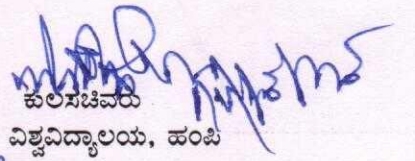 ಕುಲಸಚಿವರು
ವಿಶ್ವವಿದ್ಯಾಲಯ, ಹಂಪಿ